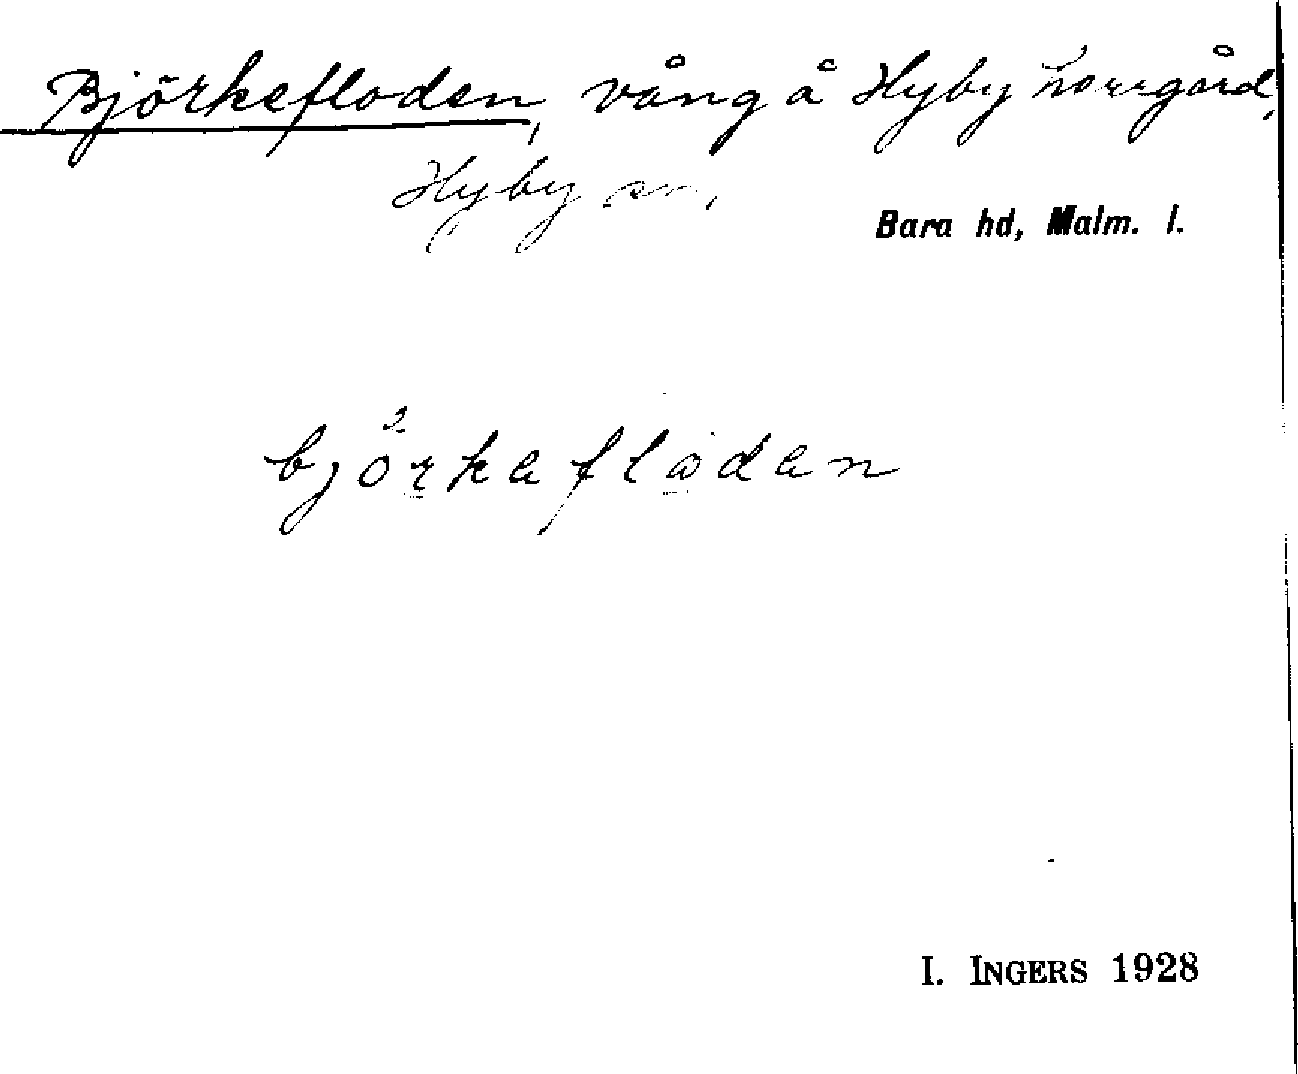 Björkefloden, vång å Hyby norrgård,
Hyby sn,
Bara hd, Malm. l.
björkafloden
I. INGERS 1928